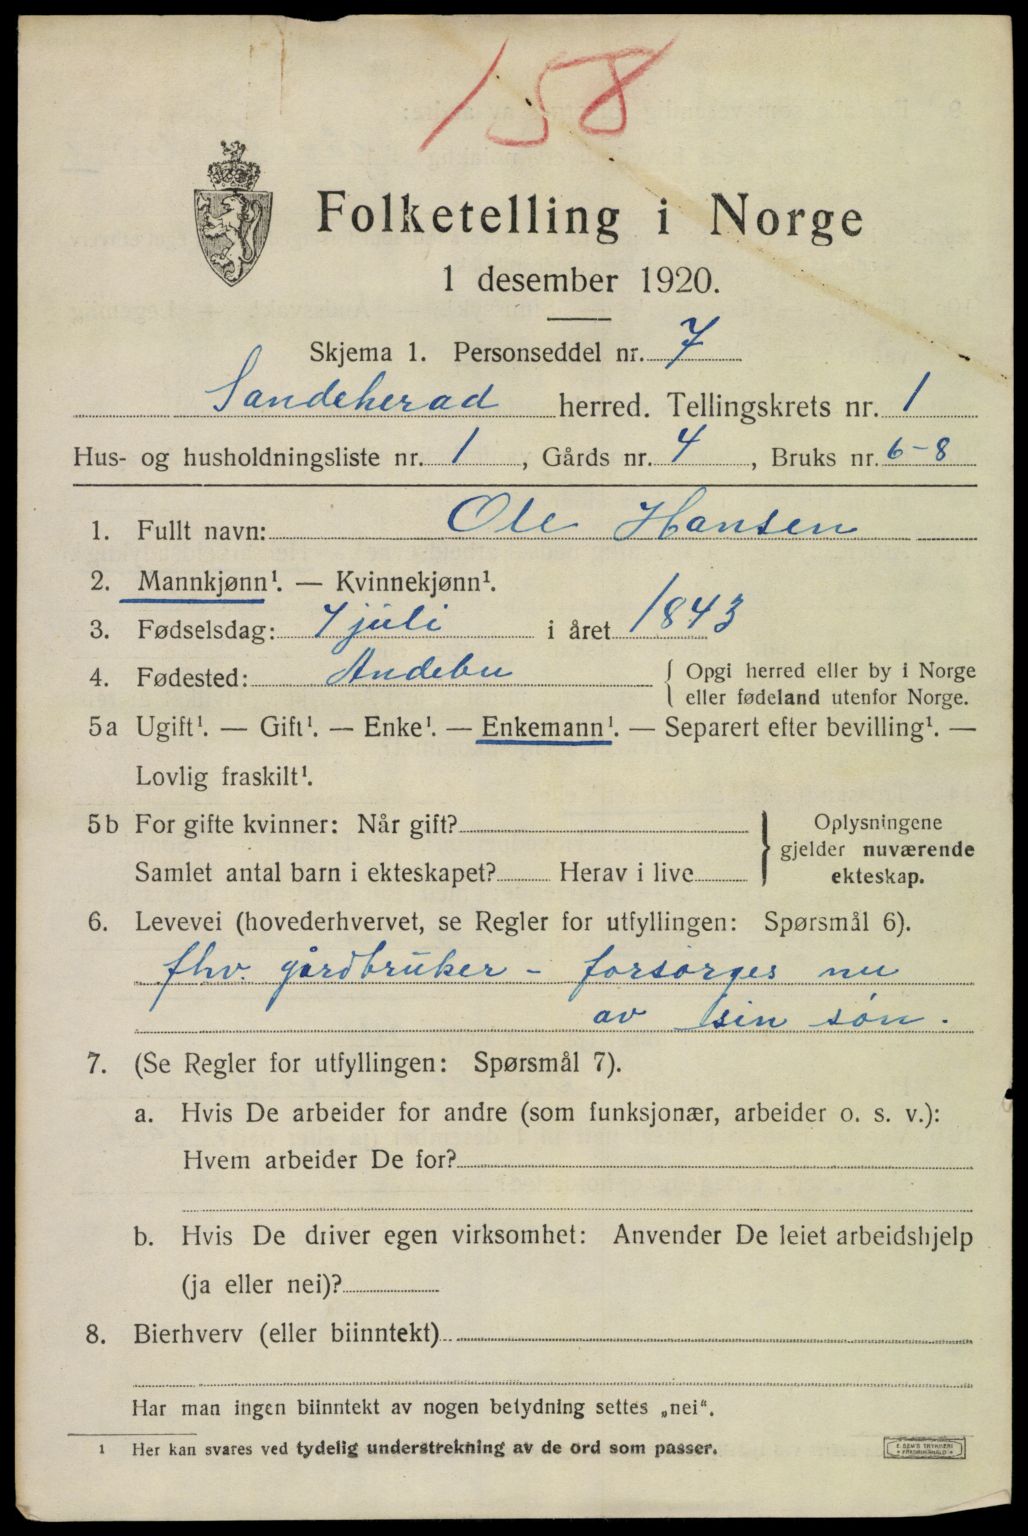 158
Folketelling i Norge
1 desember 1920.
Skjema 1. Personseddel nr. 7
Sandeherad herred. Tellingskrets nr. 1
Hus- og husholdningsliste nr. 1, Gårds nr. 4, Bruks nr. 6-8
1. Fullt navn: Ole Hansen
2. Mannkjønn¹. — Kvinnekjønn¹.
3. Fødselsdag: 7 juli i året 1843
4. Fødested: Andebu { Opgi herred eller by i Norge
eller fødeland utenfor Norge.
5a Ugift¹. — Gift¹. — Enke¹. — Enkemann¹. — Separert efter bevilling¹. —
Lovlig fraskilt¹.
5b For gifte kvinner: Når gift?
Samlet antal barn i ekteskapet? Herav i live
} Oplysningene
gjelder nuværende
ekteskap.
6. Levevei (hovederhvervet, se Regler for utfyllingen: Spørsmål 6).
fhv. gårdbruker - forsørges nu
av sin søn.
7. (Se Regler for utfyllingen: Spørsmål 7).
a. Hvis De arbeider for andre (som funksjonær, arbeider o. s. v.):
Hvem arbeider De for?
b. Hvis De driver egen virksomhet: Anvender De leiet arbeidshjelp
(ja eller nei)?
8. Bierhverv (eller biinntekt)
Har man ingen biinntekt av nogen betydning settes „nei“.
¹ Her kan svares ved tydelig understrekning av de ord som passer.
E. SEM'S TRYKKERI
FREDRIKSHALD